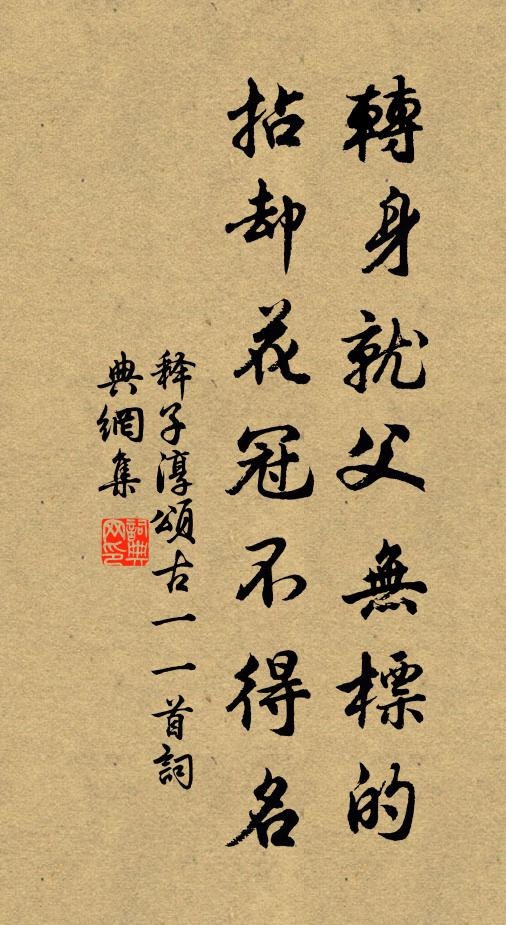 轉身就父無標的
拈却花冠不得名
释子淳頌古一一首詞
典網集
詞典網印